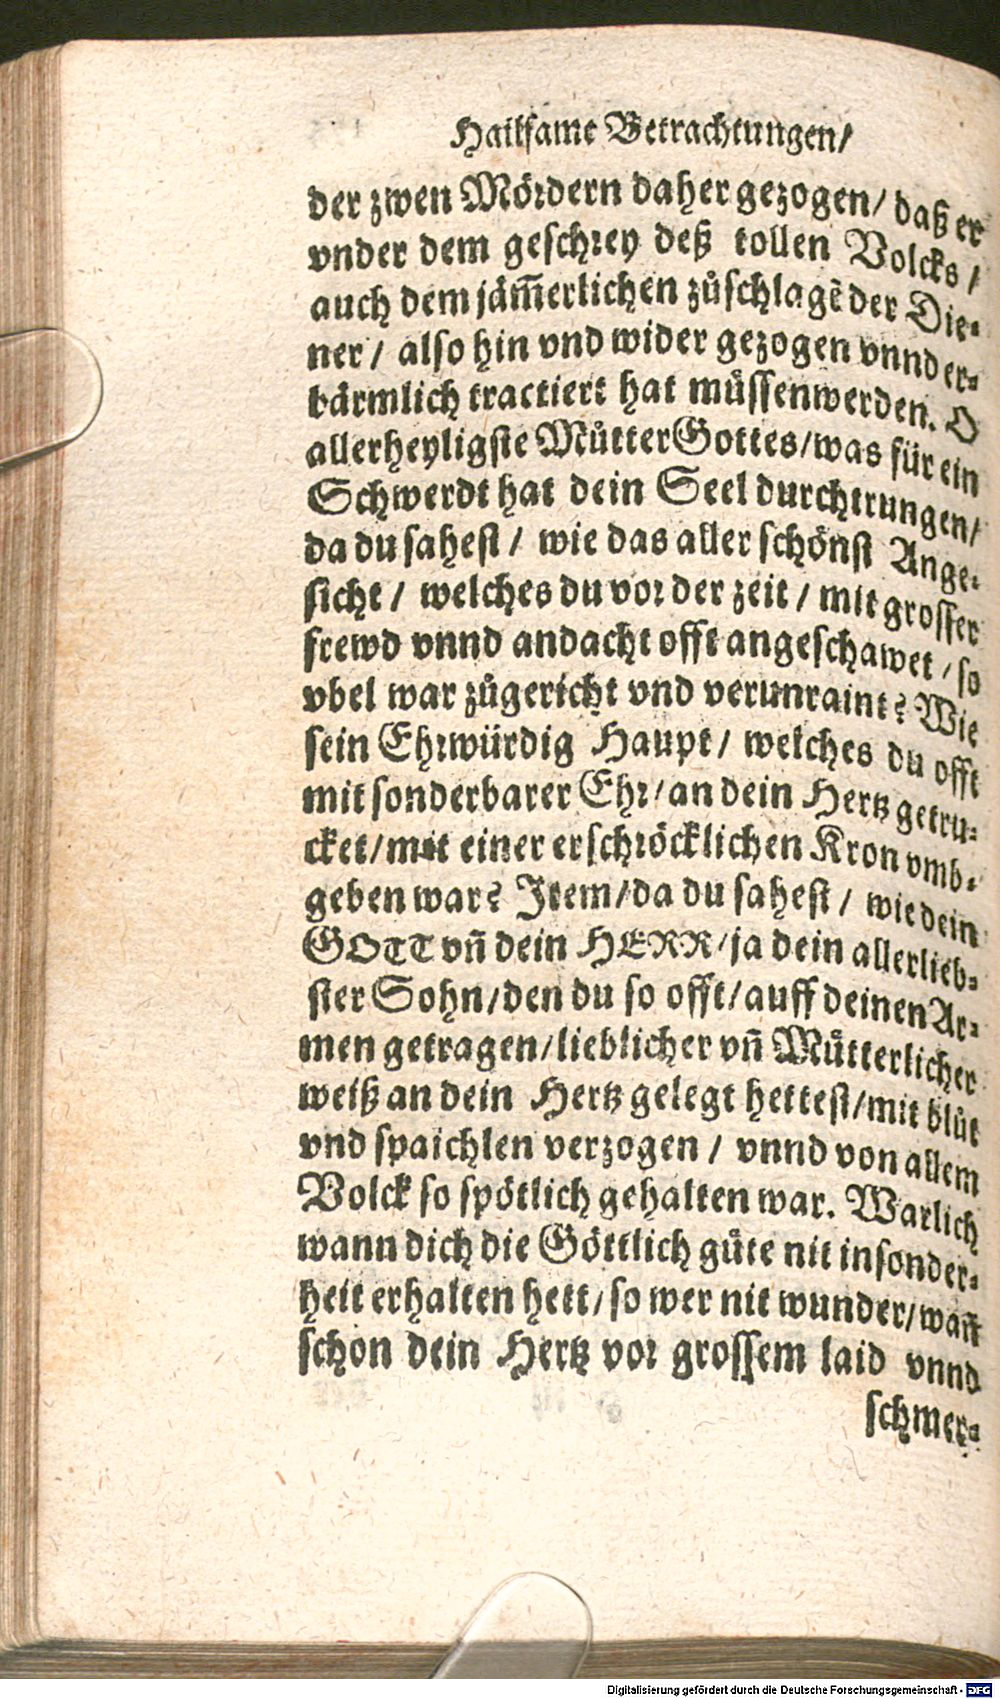 Hailsame Betrachtungen/
der zwen Mördern daher gezogen/ daß er
vnder dem geschrey deß tollen Volcks /
auch dem jäm̃erlichen zůschlagẽ der Die-
ner / also hin vnd wider gezogen vnnd er-
bärmlich tractiert hat müssen werden. O
allerheyligste Můtter Gottes/was für ein
Schwerdt hat dein Seel durchtrungen/
da du sahest / wie das aller schönst Ange-
sicht / welches du vor der zeit / mit grosser
frewd vnnd andacht offt angeschawet / so
vbel war zůgericht vnd verunraint? Wie
sein Ehrwürdig Haupt / welches du offt
mit sonderbarer Ehr/an dein Hertz getru-
cket/mit einer erschröcklichen Kron vmb-
geben war? Item/da du sahest / wie dein
GOTT vñ dein HERR/ja dein allerlieb-
ster Sohn/den du so offt/auff deinen Ar-
men getragen/lieblicher vñ Můtterlicher
weiß an dein Hertz gelegt hettest/mit blůt
vnd spaichlen verzogen / vnnd von allem
Volck so spötlich gehalten war. Warlich
wann dich die Göttlich güte nit insonder-
heit erhalten hett/so wer nit wunder/wañ
schon dein Hertz vor grossem laid vnnd
schmer-
Digitalisierung gefördert durch die Deutsche Forschungsgemeinschaft - DFG